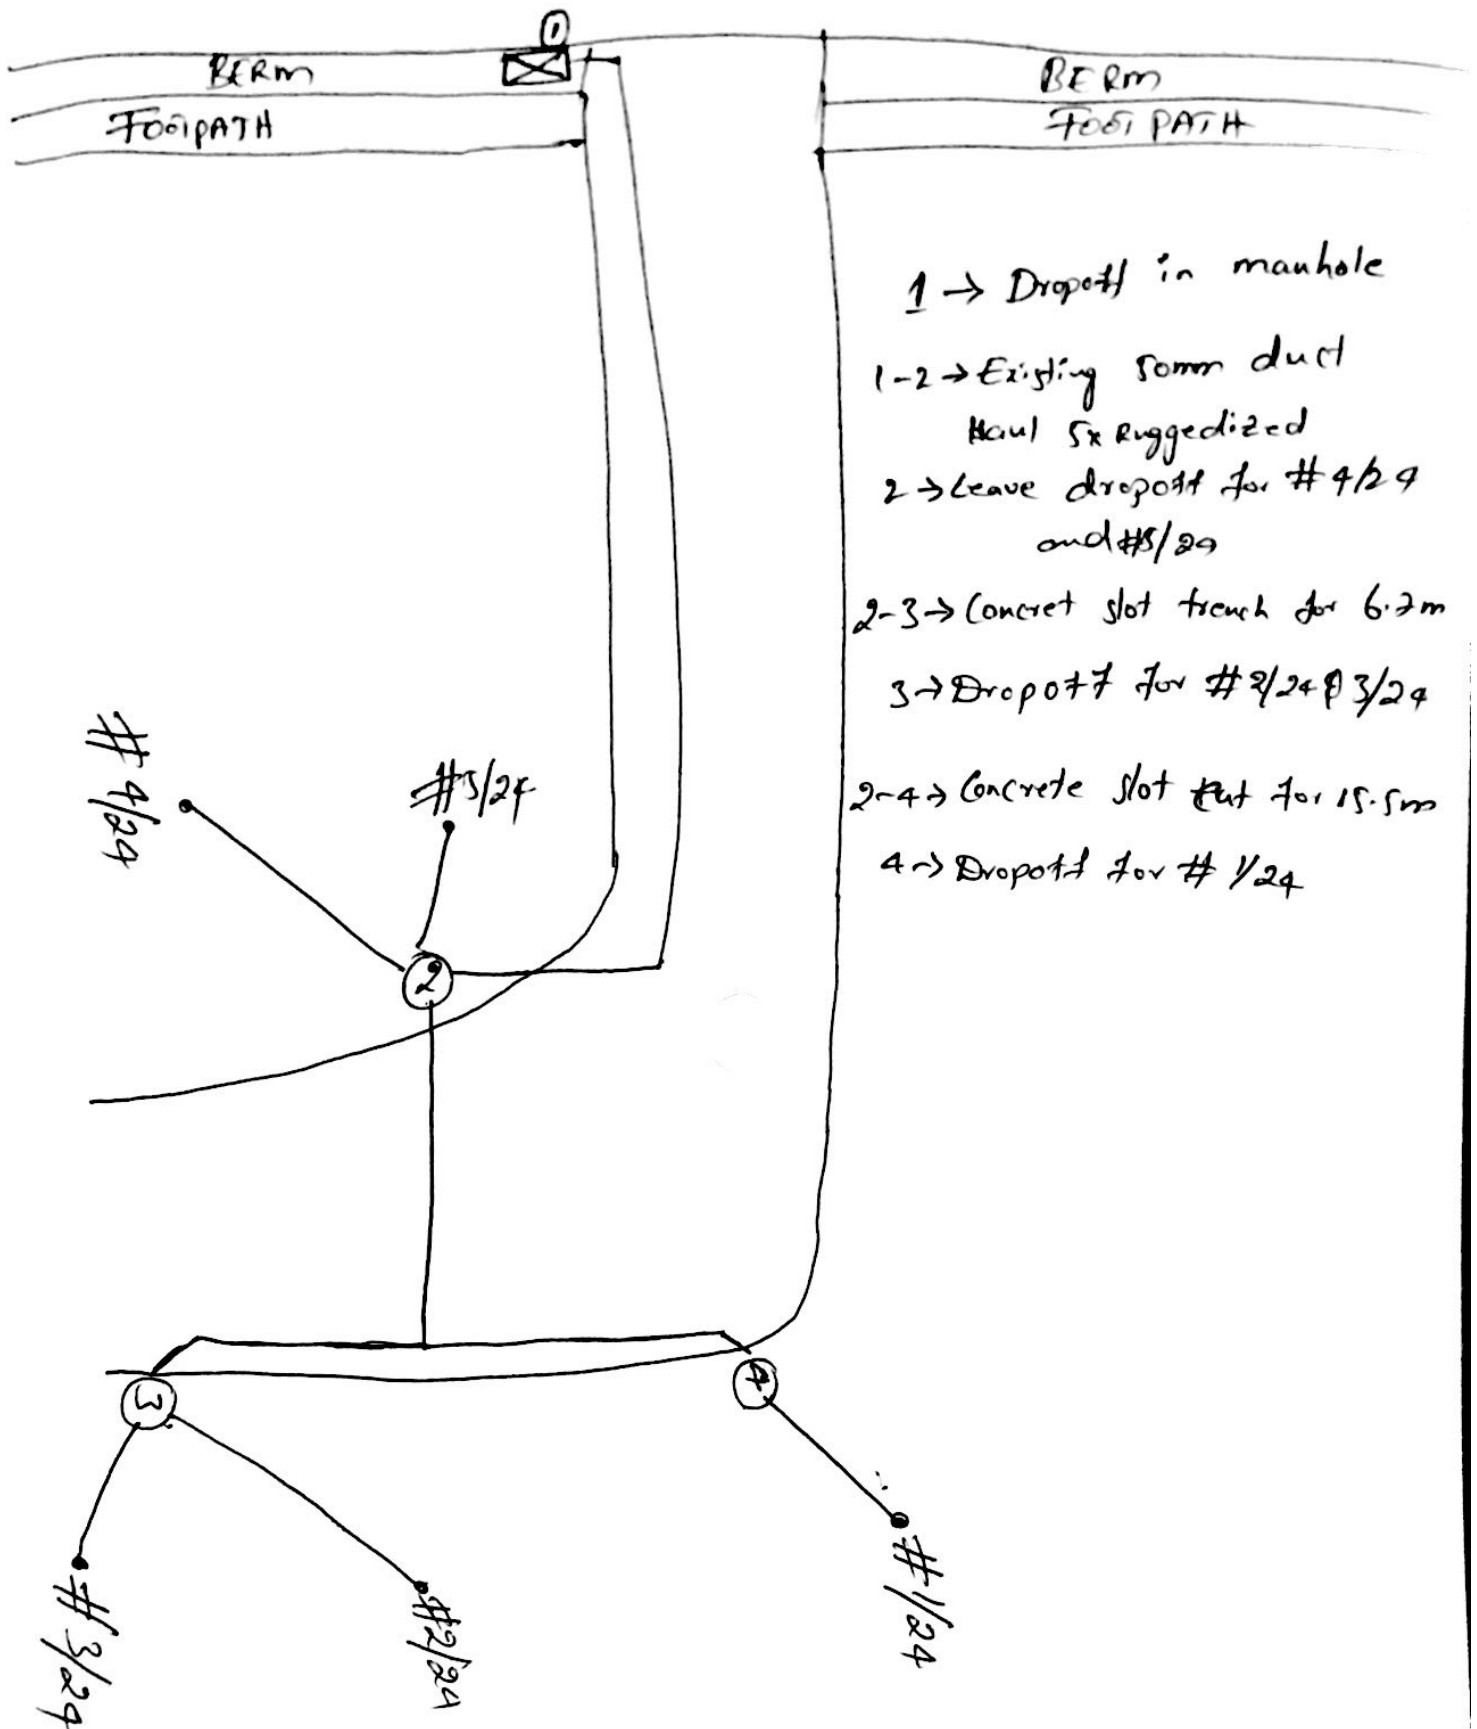 1
BERM
BERM
FOOTPATH
FOOTPATH
1 → Dropoff in manhole
1-2 → Existing 50mm duct
Haul 5x Ruggedized
2 → Leave dropoff for #4/24
and #5/24
2-3 → Concret slot trench for 6.2m
3 → Dropoff for #2/24 3/24
2-4 → Concrete slot cut for 15.5m
4 → Dropoff for # 1/24
#4/24
#5/24
2
3
4
#3/24
#2/24
#1/24